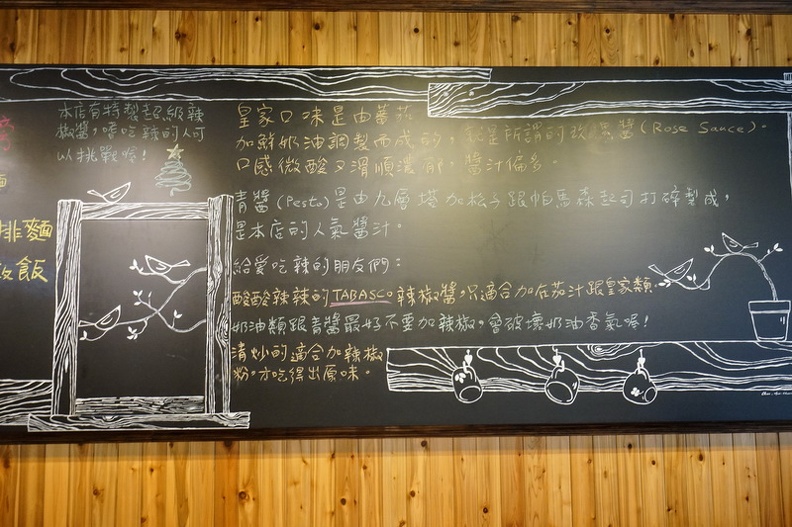 本店有特製超級辣
椒醬,喀吃辣的人可
以挑戰喔!
排麵
飯
皇家口味是由蕃茄
加鮮奶油調製而成的,就是所謂的玫瑰醬(Rose Sauce)。
口感微酸又滑順濃郁。醬汁偏多。
青醬(Pesto)是由九層塔加松子跟帕馬森起司打碎製成,
是本店的人氣醬汁。
給愛吃辣的朋友們:
酸酸辣辣的TABASCO辣椒醬,只適合加在茄汁跟皇家類。
奶油類跟青醬最好不要加辣椒,會破壞奶油香氣喔!
清炒的適合加辣椒
粉。才吃得出原味。